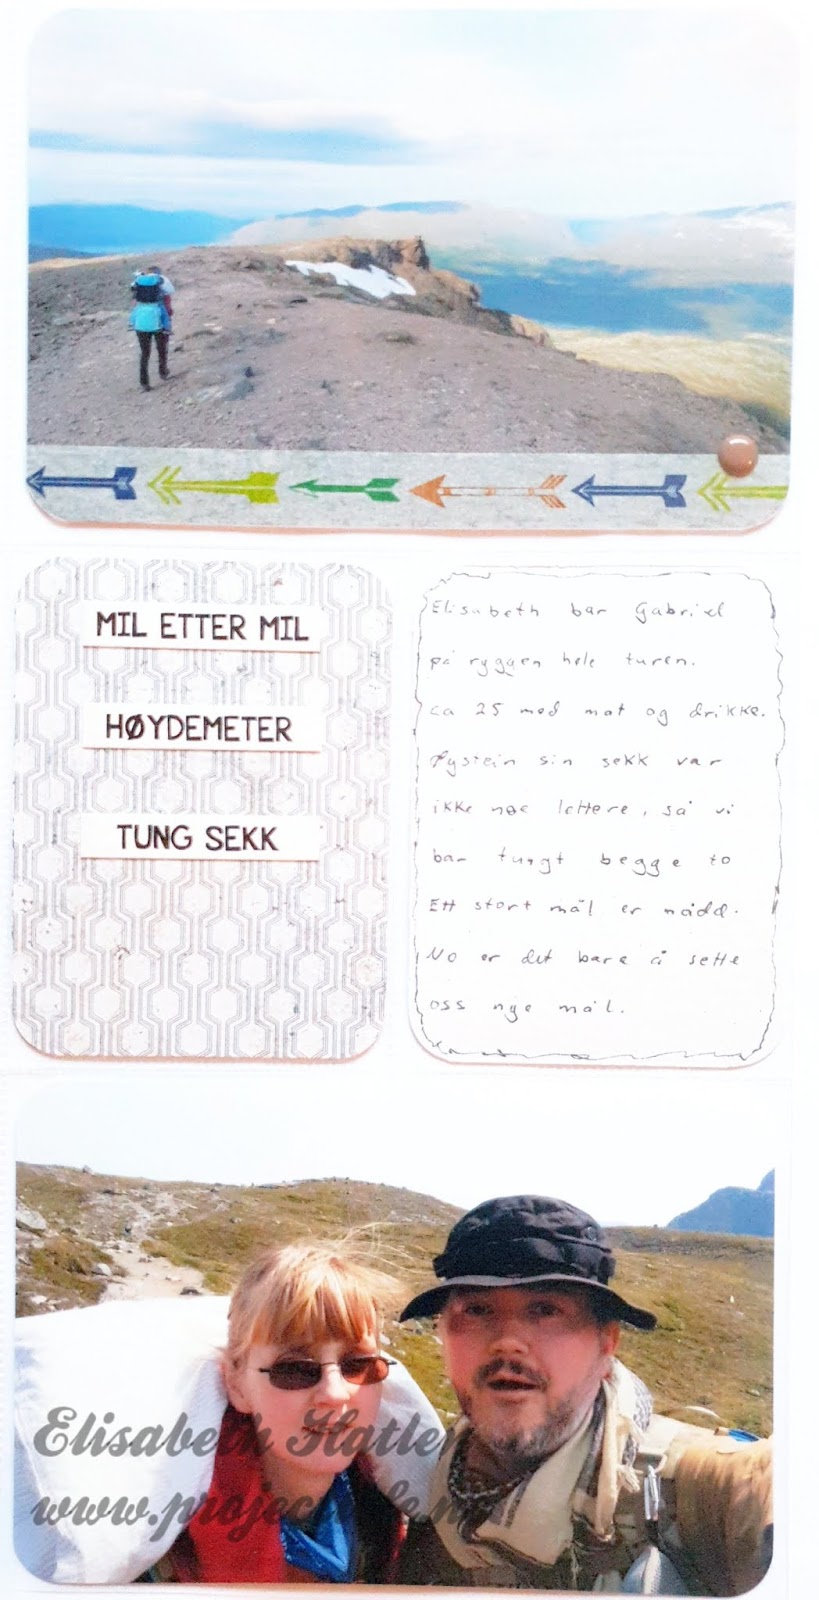 MIL ETTER MIL
HØYDEMETER
TUNG SEKK
Elisabeth bar Gabriel
på ryggen hele turen.
ca 25 med mat og drikke.
Øystein sin sekk var
ikke noe lettere, så vi
bar tungt begge to
Ett stort mål er nådd.
No er det bare å sette
oss nye mål.
Elisabeth Hatlen